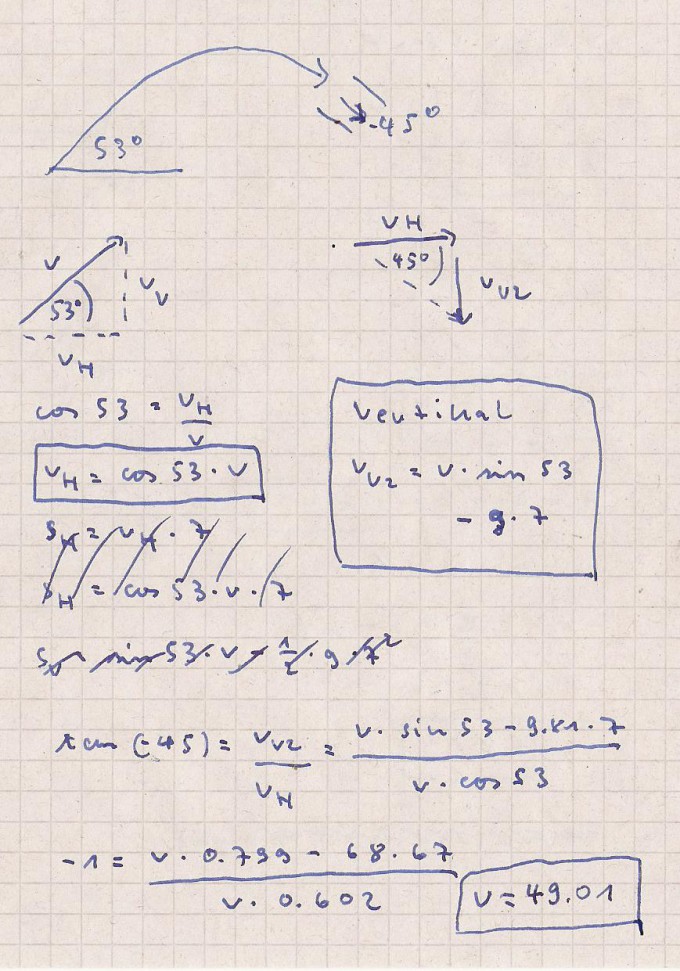 53°
-45°
v
53°
v_V
v_H
v_H
45°
v_V2
cos 53 = v_H / v
v_H = cos 53 · v
s_H = v_H · 7
s_H = cos 53 · v · 7
vertikal
v_V2 = v · sin 53
- g · 7
s_v = sin 53 · v - 1/2 · g · 7²
tan (-45) = v_V2 / v_H = v · sin 53 - 9.81 · 7 / v · cos 53
-1 = v · 0.799 - 68.67 / v · 0.602
v = 49.01